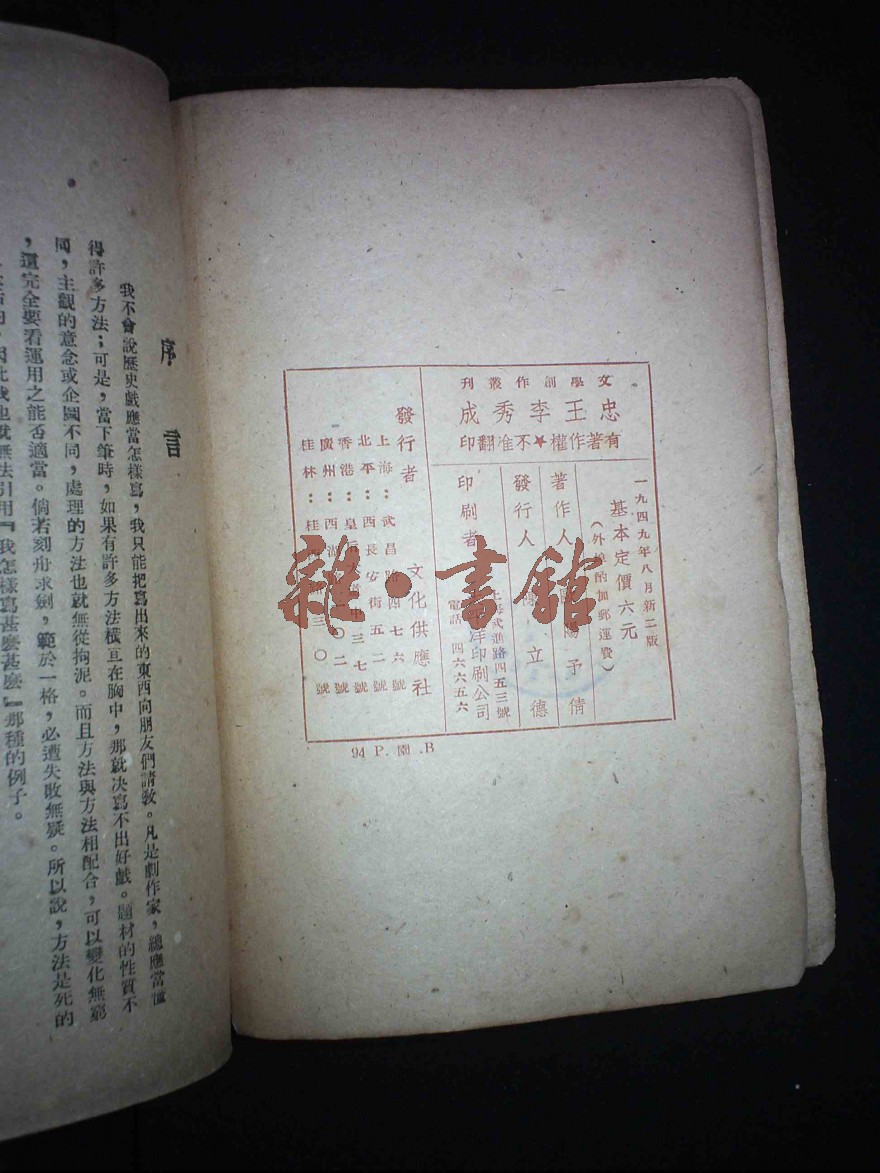 文學創作叢刊
忠王李秀成
有著作權★不准翻印
一九四九年八月新二版
基本定價六元
(外埠酌加郵運費)
著作人 陽予倩
發行人 立德
印刷者 洋印刷公司
武進路四五三號
電話 四六六五六
發行者 文化供應社
上海:武昌路四七六號
北平:西長安街五二號
香港:皇 三七號
廣州:西湖 〇二號
桂林:桂 三〇號
94 P. 園 .B
序言
我不會說歷史戲應當怎樣寫,我只能把寫出來的東西向朋友們請教。凡是劇作家,總應當懂
得許多方法;可是,當下筆時,如果有許多方法橫亘在胸中,那就決寫不出好戲。題材的性質不
同,主觀的意念或企圖不同,處理的方法也就無從拘泥。而且方法與方法相配合,可以變化無窮
,還完全要看運用之能否適當。倘若刻舟求劍,範於一格,必遭失敗無疑。所以說,方法是死的
因此我也就無法引用『我怎樣寫甚麽甚麽』那種的例子。
雜·書館